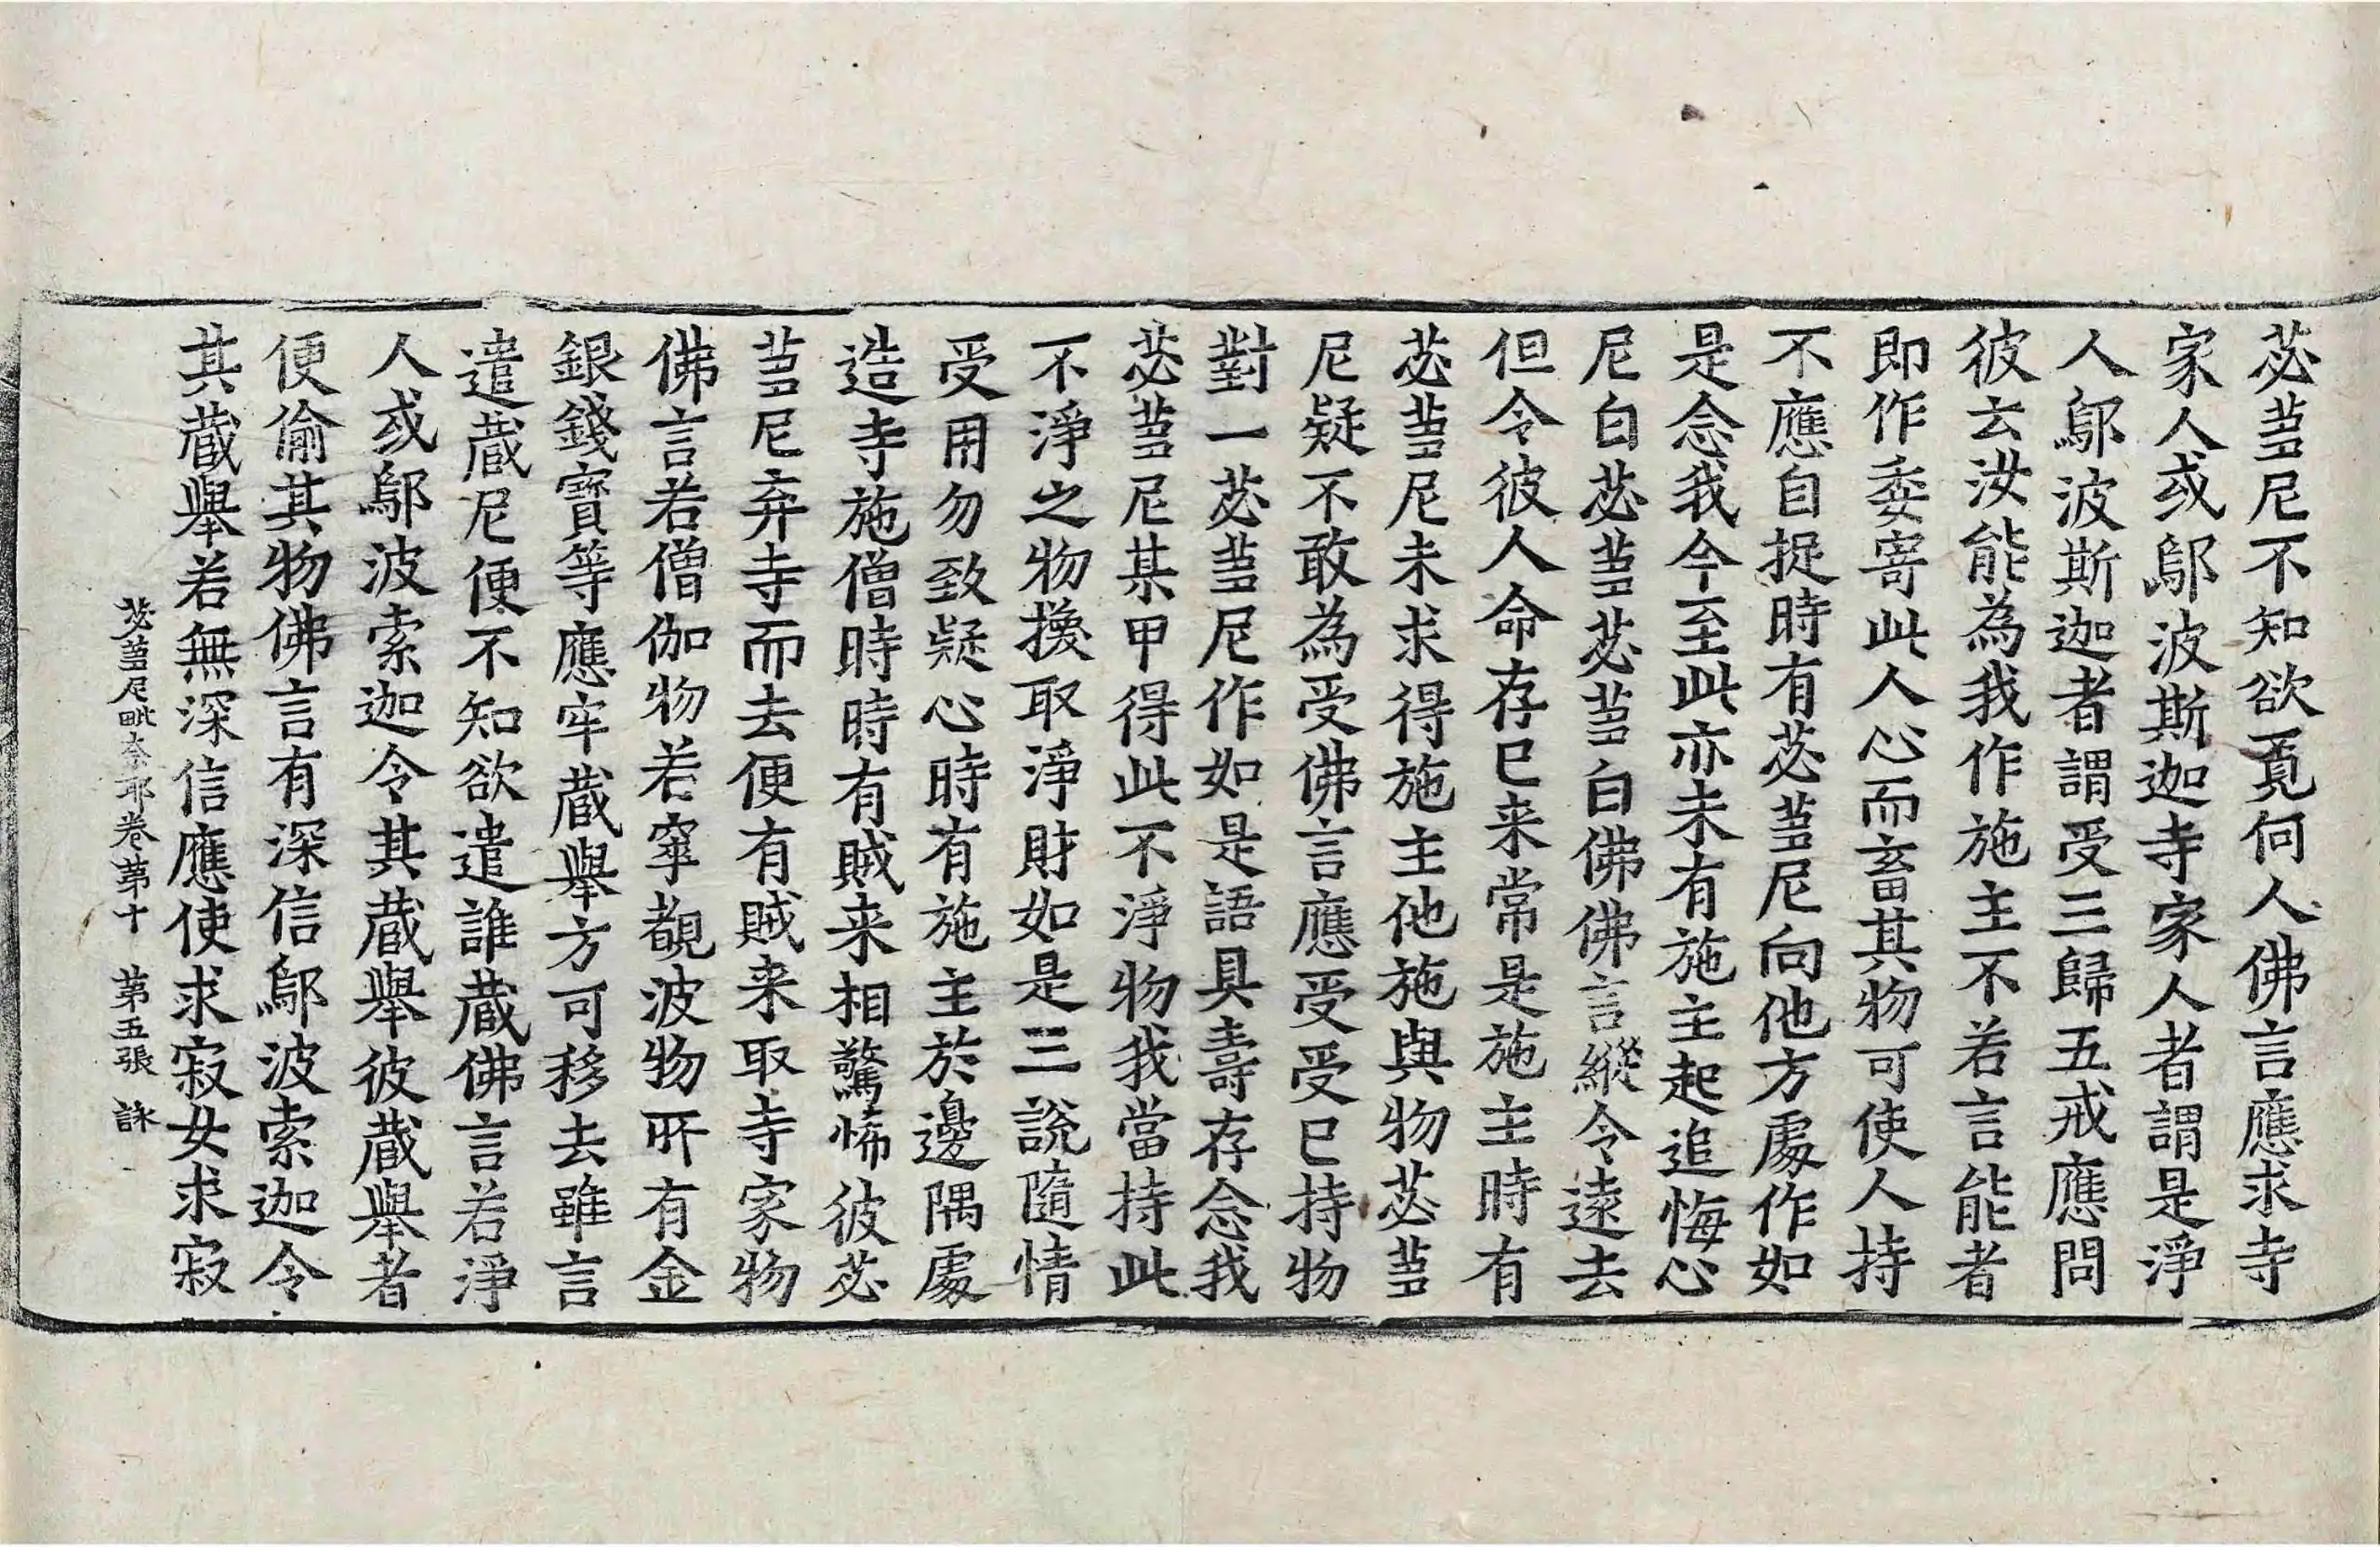 苾蒭尼不知欲覓何人佛言應求寺
家人或鄔波斯迦寺家人者謂是淨
人鄔波斯迦者謂受三歸五戒應問
彼云汝能為我作施主不若言能者
即作委寄此人心而畜其物可使人持
不應自捉時有苾蒭尼向他方處作如
是念我今至此亦未有施主起追悔心
尼白苾蒭苾蒭白佛佛言縱令遠去
但令彼人命存已来常是施主時有
苾蒭尼未求得施主他施與物苾蒭
尼疑不敢為受佛言應受受已持物
對一苾蒭尼作如是語具壽存念我
苾蒭尼某甲得此不淨物我當持此
不淨之物換取淨財如是三說隨情
受用勿致疑心時有施主於邊隅處
造寺施僧時時有賊来相驚怖彼苾
蒭尼弃寺而去便有賊来取寺家物
佛言若僧伽物若窣覩波物所有金
銀錢寶等應牢藏舉方可移去雖言
遣藏尼便不知欲遣誰藏佛言若淨
人或鄔波索迦令其藏舉彼藏舉者
便偷其物佛言有深信鄔波索迦令
其藏舉若無深信應使求寂女求寂
苾蒭尼毗奈耶卷第十 第五張 詠